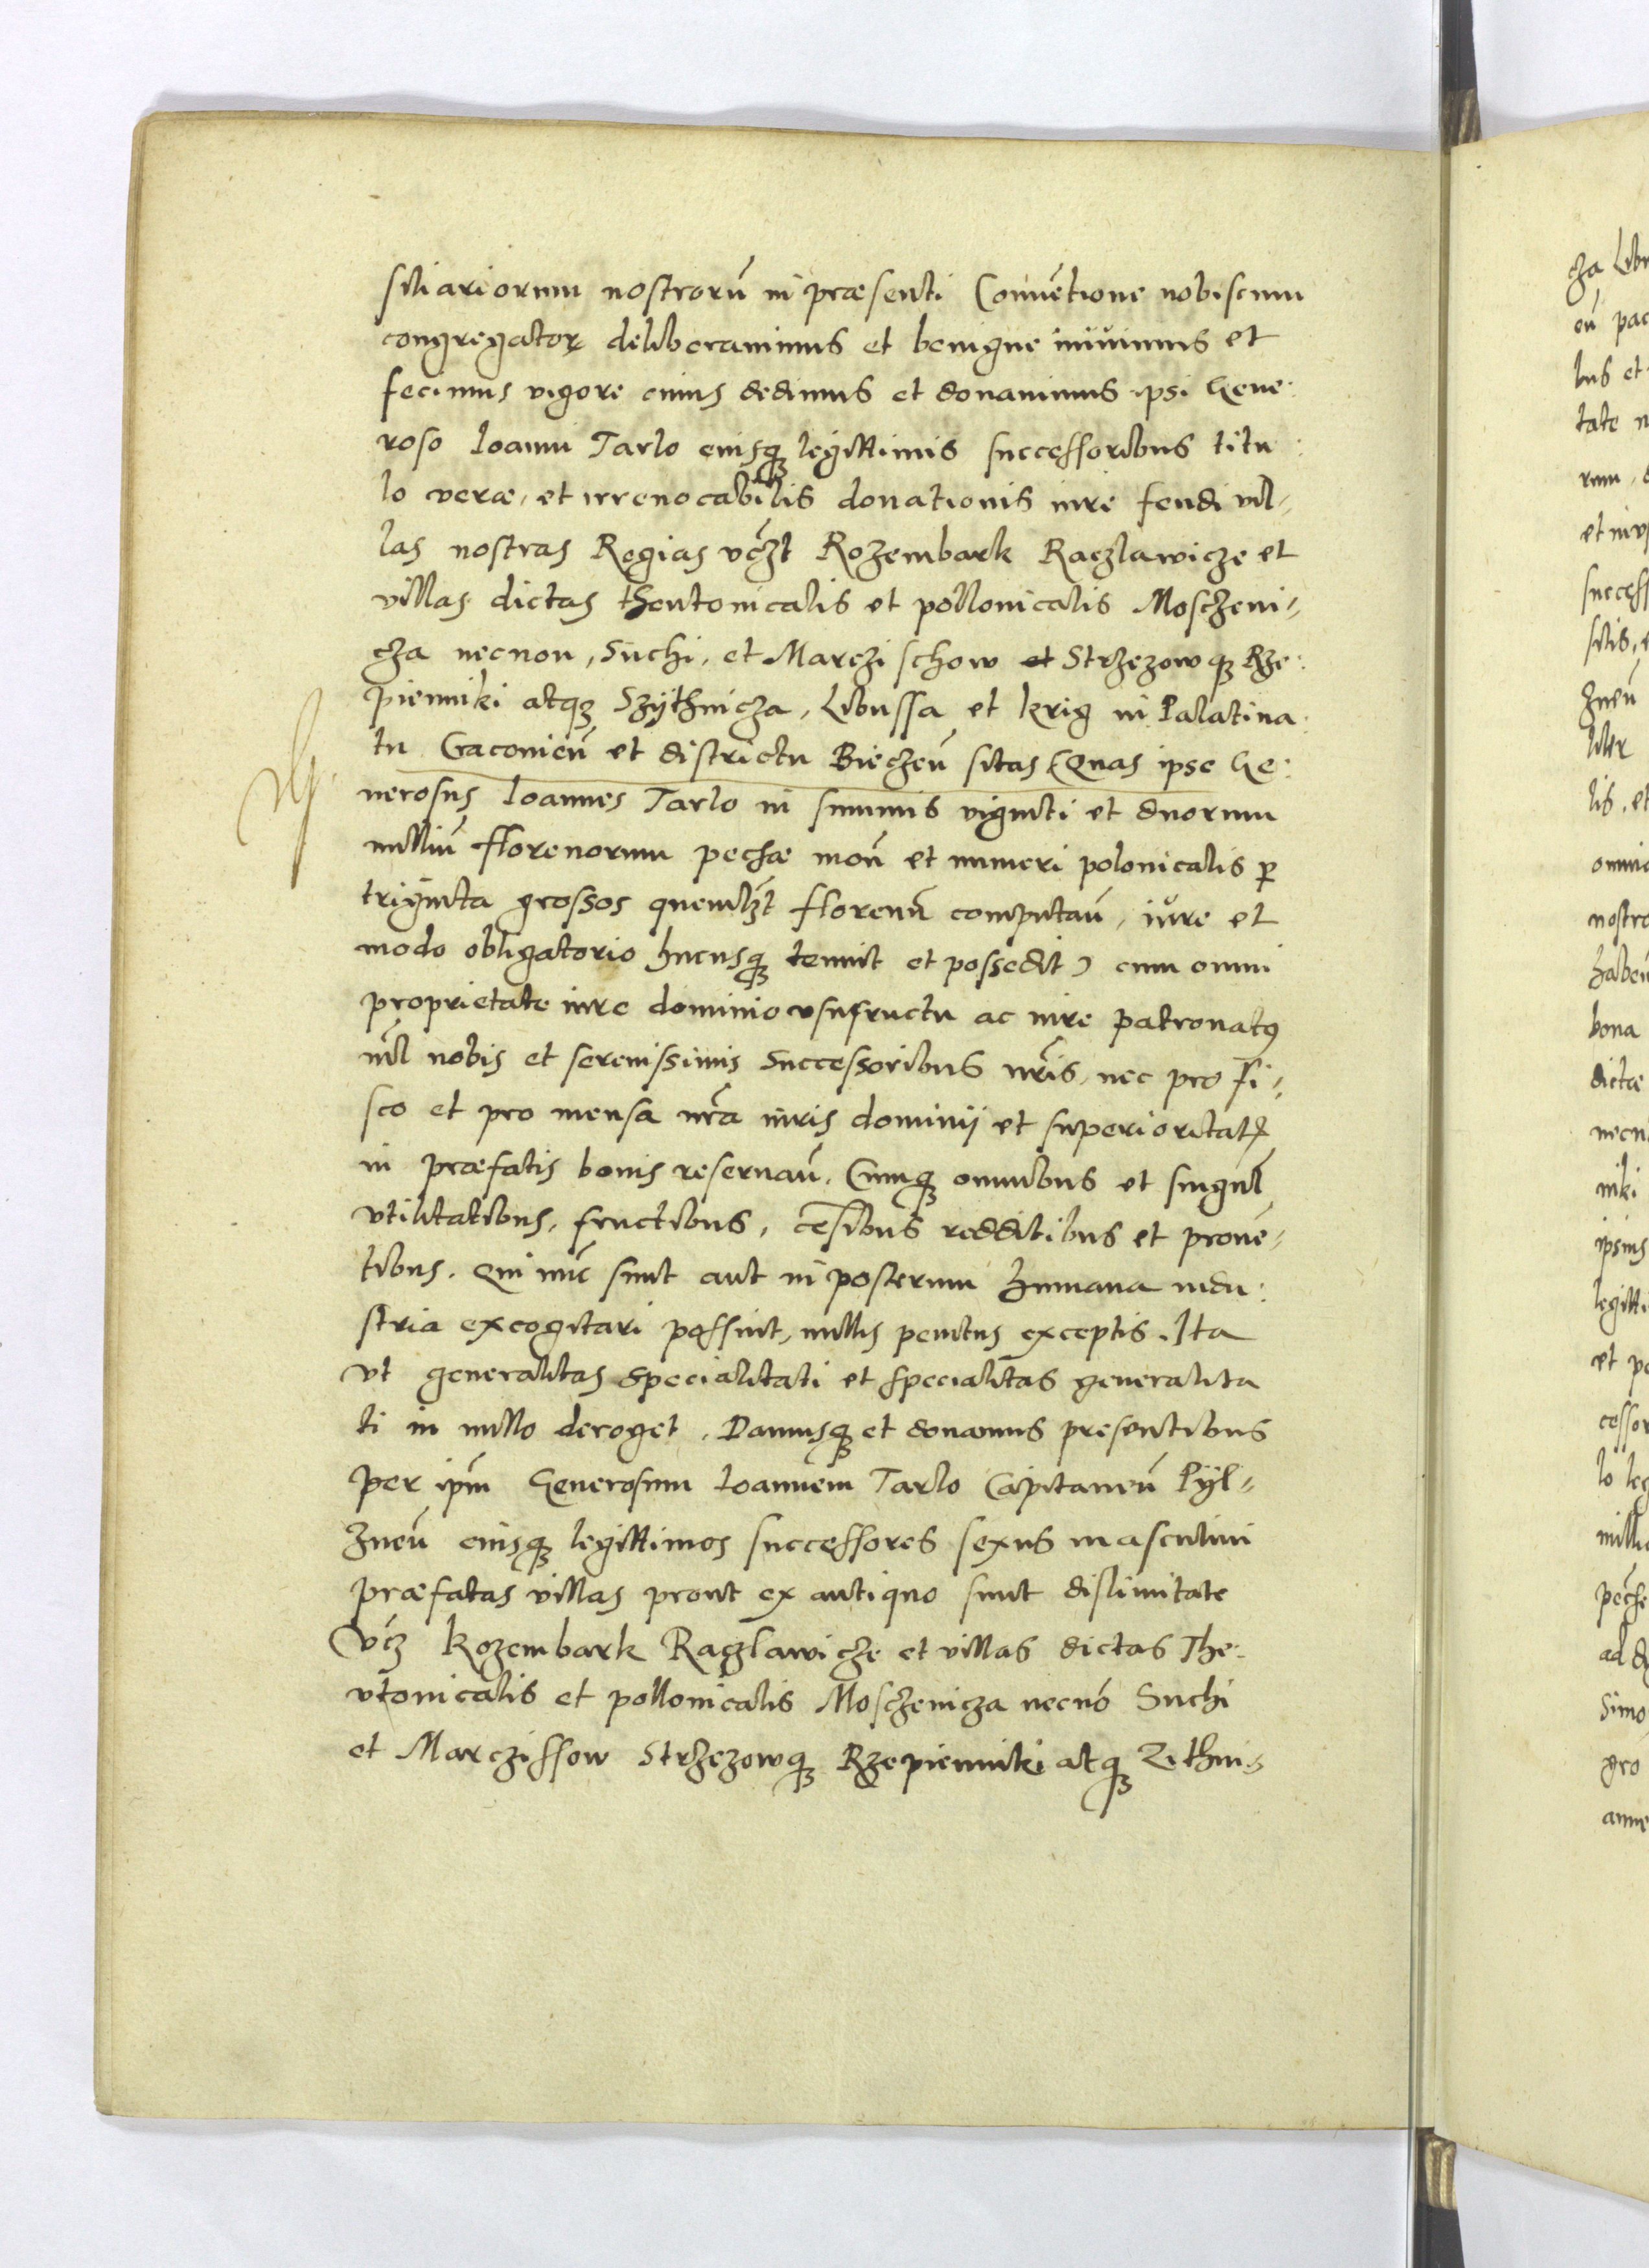 siliariorum nostrorū in præsenti Conuētione nobiscum
congregatoꝝ deliberauimus et benigne iniuimus et
fecimus vigore cuius dedimus et donauimus ipsi Gene:
roso Ioanni Tarlo eiusqꝫ legittimis successoribus titu
lo veræ, et irreuocabilis donationis iure feudi vil-
las nostras Regias vcꝫt Rozembark Raczlawicze et
villas dictas thentonicalis et pollonicalis Moszczeni-
cza necnon, Suchi, et Marczi schow et Strzezowqꝫ Rze:
pienniki atqꝫ Szythnicza, Libussa et Krig in Palatina
tu Cracouień et districtu Biecień sitas (Quas ipse Ge:
nerosus Ioannes Tarlo in summis viginti et duorum
milliū florenorum pechæ moń et numeri polonicalis ꝑ
triginta grossos quemlꝫt florenū computań, iure et
modo obligatorio hucusqꝫ tenuit et possedit) cum omni
proprietate iure dominio vsufructu ac iure patronatꝰ
nīl nobis et serenissimis Successoribus nris, nec pro fi-
sco et pro mensa nra iuris dominij et superioritatꝭ
in præfatis bonis reseruań. Cumqꝫ omnibus et singul
vtilitatibus, fructibus, cēsibus redditibus et prouē-
tibus. Qui nūc sunt aut in posterum humana indu:
stria excogitari possint, nullis penitus exceptis. Ita
vt generalitas specialitati et specialitas generalita
ti in nullo deroget. Damusqꝫ et donamus presentibus
per ipm Generosum Ioannem Tarlo Capitaneū Pyl-
zneń eiusqꝫ legittimos successores sexus masculini
præfatas villas prout ex antiquo sunt dislimitate
Vcꝫ Rozembark Raczlawicze et villas dictas The:
vtonicalis et pollonicalis Moszczenicza necnō Suchi
et Marczissow Strzezowqꝫ Rzepienniki atqꝫ Zithni-